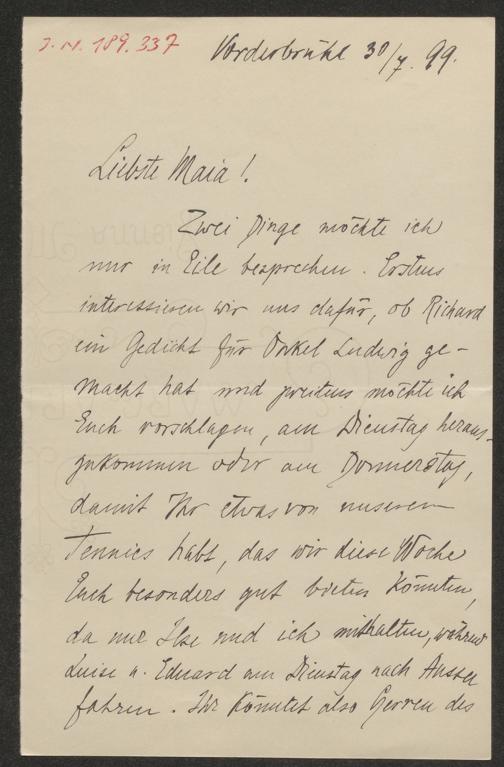 J.N. 189.337
Vorderbrühl 30/7. 99.
Liebste Maia!
Zwei Dinge möchte ich
nur in Eile besprechen. Erstens
interessieren wir uns dafür, ob Richard
ein Gedicht für Onkel Ludwig ge-
macht hat und zweitens möchte ich
Euch vorschlagen, am Dienstag heraus-
zukommen oder am Donnerstag,
damit Ihr etwas von unserem
Tennies habt, das wir diese Woche
Euch besonders gut bieten könnten,
da nur Ilse und ich mithalten, während
Luise u. Eduard am Dienstag nach Aussee
fahren. Ihr könntet also Gerren des